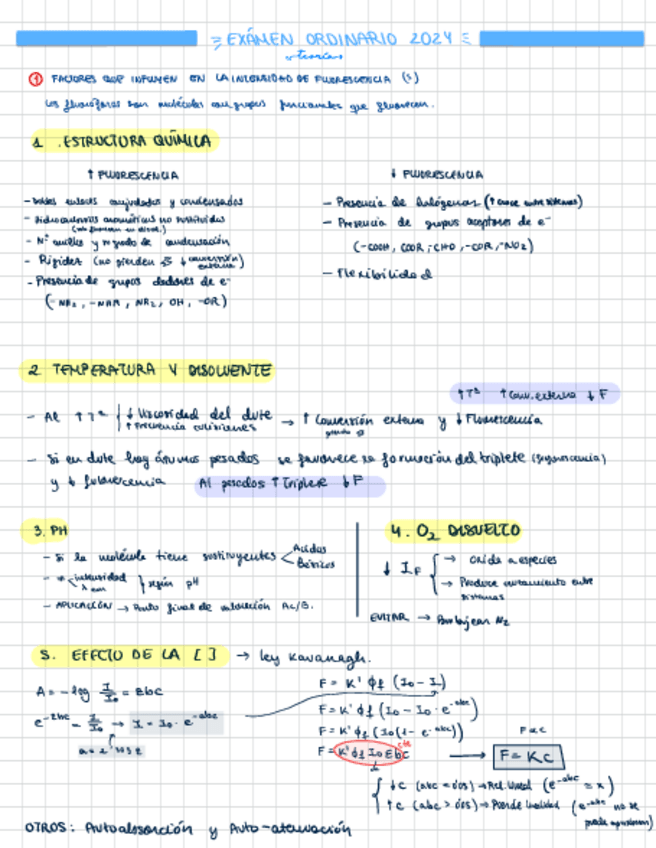 EXÁMEN ORDINARIO 2024
teoría
① FACTORES QUE INFLUYEN EN LA INTENSIDAD DE FLUORESCENCIA
Los fluoróforos son moléculas con grupos funcionales que fluorecen.
1. ESTRUCTURA QUÍMICA
↑ FLUORESCENCIA
- Dobles enlaces conjugados y condensados
- Hidrocarburos aromáticos no sustituidos
- Nº anillos y grado de condensación
- Rigidez (no pierden ↓ conversión externa)
- Presencia de grupos dadores de e⁻
(-NH₂, -NHR, NR₂, OH, -OR)
↓ FLUORESCENCIA
- Presencia de halógenos (↑ cruce entre sistemas)
- Presencia de grupos aceptores de e⁻
(-COOH, COOR, -CHO, -COR, -NO₂)
- Flexibilidad
2 TEMPERATURA Y DISOLVENTE
↑Tª ↑Conv. externa ↓F
- Al ↑Tª ↓ Viscosidad del dvte → ↑ Conversión externa y ↓ Fluorescencia
↑ Frecuencia colisiones
- Si en dvte hay átomos pesados se favorece la formación del triplete (fosforescencia)
y ↓ fluorescencia
At pesados ↑ Triplete ↓F
3. PH
- Si la molécula tiene sustituyentes Ácidos
Básicos
- ≠ intensidad según pH
λ em
- APLICACIÓN → Punto final de valoración Ac/B.
4. O₂ DISUELTO
↓ I_F → Oxida a especies
→ Produce cruzamiento entre sistemas
EVITAR → Burbujear N₂
5. EFECTO DE LA [ ] → ley Kavanagh.
A = -log I/I₀ = εbc
e^-abc = I/I₀ → I = I₀ · e^-abc
a = 2'303 ε
F = K' ϕf (I₀ - I)
F = K' ϕf (I₀ - I₀ · e^-abc)
F = K' ϕf (I₀(1 - e^-abc))
F = K' ϕf I₀ εbc cte
F α c
F = Kc
↓c (abc < 0'05) → Rel. lineal (e^-abc ≈ x)
↑c (abc > 0'05) → Pierde linealidad (e^-abc no se puede aproximar)
OTROS: Autoabsorción y Auto-atenuación